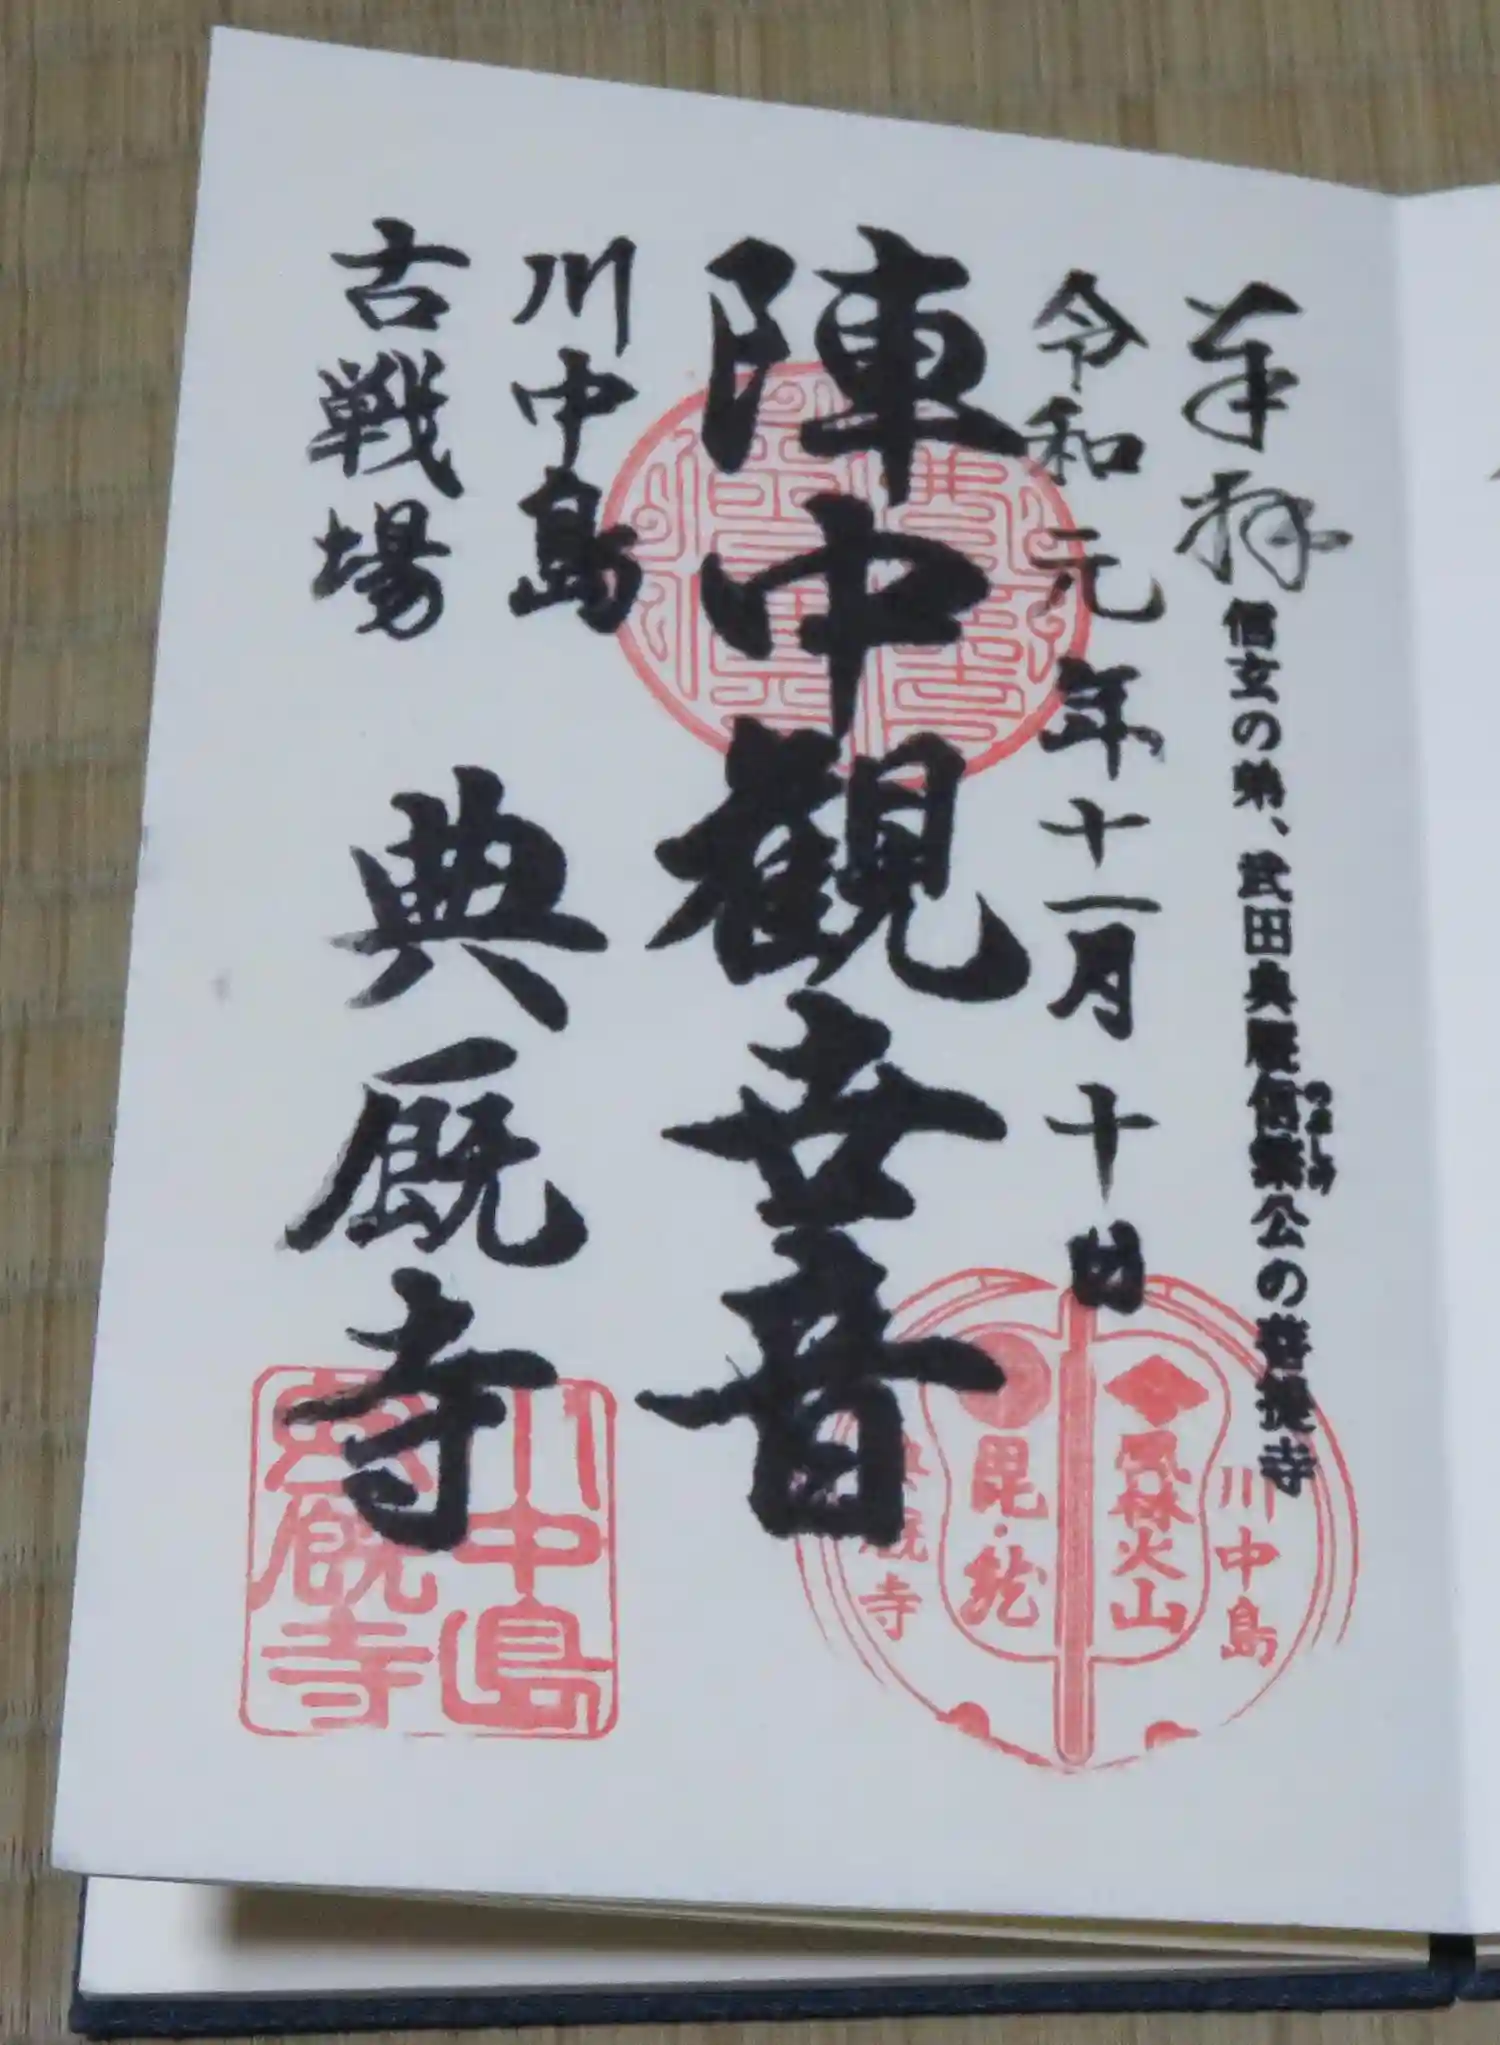 奉拝
信玄の弟、武田典厩信繁公の菩提寺
のぶしげ
令和元年十一月十日
陣中観世音
川中島
古戦場
典厩寺
川中島
風林火山
毘・龍
典厩寺
川中島
典厩寺